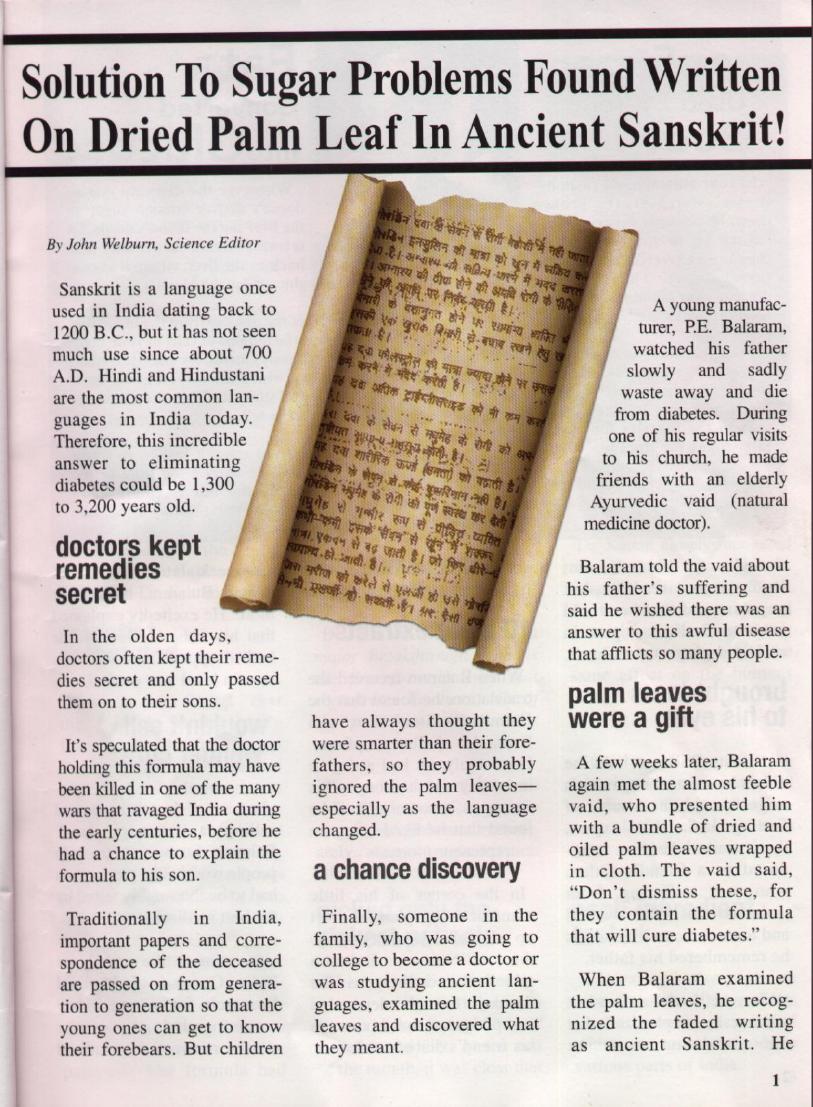 Solution To Sugar Problems Found Written
On Dried Palm Leaf In Ancient Sanskrit!
By John Welburn, Science Editor
Sanskrit is a language once
used in India dating back to
1200 B.C., but it has not seen
much use since about 700
A.D. Hindi and Hindustani
are the most common lan-
guages in India today.
Therefore, this incredible
answer to eliminating
diabetes could be 1,300
to 3,200 years old.
doctors kept
remedies
secret
In the olden days,
doctors often kept their reme-
dies secret and only passed
them on to their sons.
It's speculated that the doctor
holding this formula may have
been killed in one of the many
wars that ravaged India during
the early centuries, before he
had a chance to explain the
formula to his son.
Traditionally in India,
important papers and corre-
spondence of the deceased
are passed on from genera-
tion to generation so that the
young ones can get to know
their forebears. But children
दवा के सेवन से रोगी बेहोशी में नही जाता
इनसुलिन की मात्रा को खून में सक्रिय
है।
दवा के सेवन से मधुमेह के रोगी को
यह दवा शारीरिक ऊर्जा (क्षमता) को बढ़ाती है।
के सेवन से कोई दुष्परिणाम नही है।
मधुमेह के रोगी को पूर्ण स्वस्थ कर देती
have always thought they
were smarter than their fore-
fathers, so they probably
ignored the palm leaves—
especially as the language
changed.
a chance discovery
Finally, someone in the
family, who was going to
college to become a doctor or
was studying ancient lan-
guages, examined the palm
leaves and discovered what
they meant.
A young manufac-
turer, P.E. Balaram,
watched his father
slowly and sadly
waste away and die
from diabetes. During
one of his regular visits
to his church, he made
friends with an elderly
Ayurvedic vaid (natural
medicine doctor).
Balaram told the vaid about
his father's suffering and
said he wished there was an
answer to this awful disease
that afflicts so many people.
palm leaves
were a gift
A few weeks later, Balaram
again met the almost feeble
vaid, who presented him
with a bundle of dried and
oiled palm leaves wrapped
in cloth. The vaid said,
“Don't dismiss these, for
they contain the formula
that will cure diabetes.”
When Balaram examined
the palm leaves, he recog-
nized the faded writing
as ancient Sanskrit. He
1